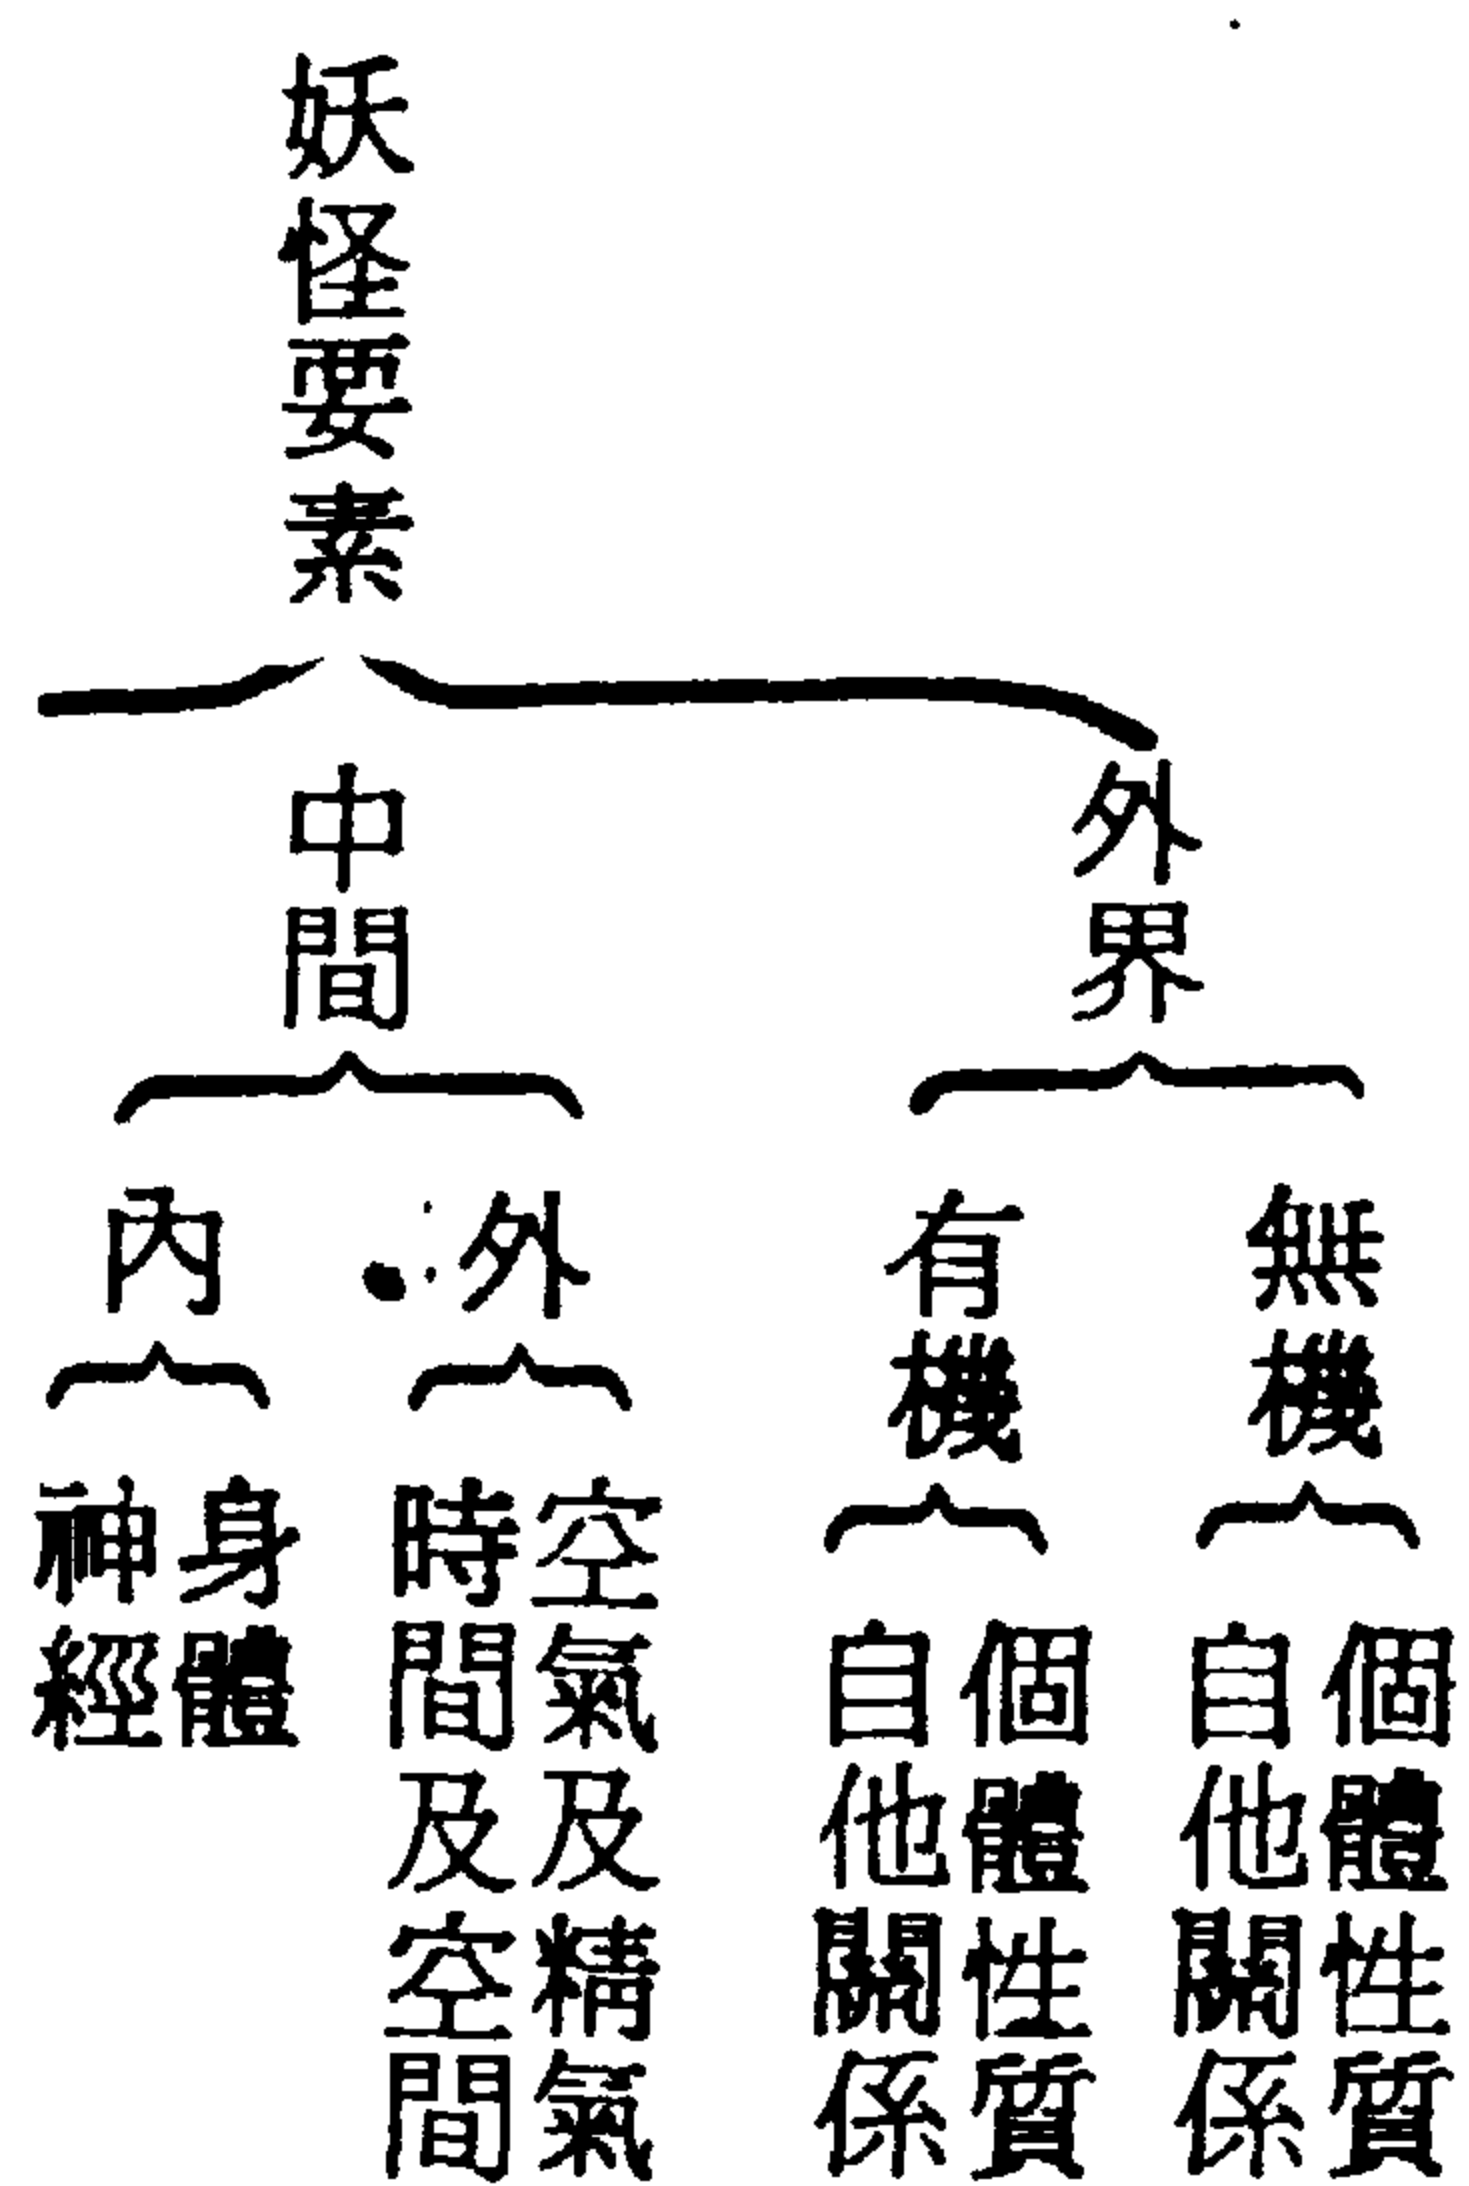 妖怪要素
外界
無機
個體性質
自他關係
有機
個體性質
自他關係
中間
外
空氣及精氣
時間及空間
內
身體
神經